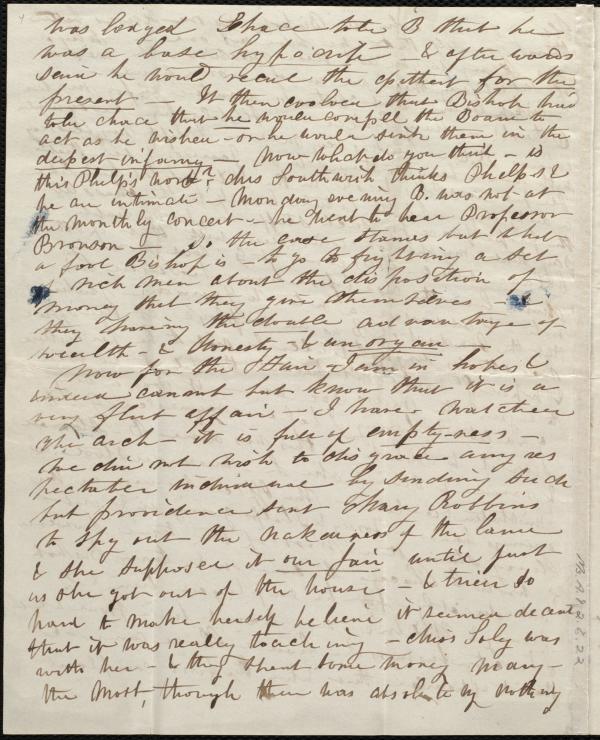 was lodged Chace told B that he
was a base hypocrite – & afterwards
said he would recal the epithet for the
present – It then evolved that Bishop had
told Chace that he would compell the Board to
act as he wished – or he would sink them in the
deepest infamy – Now what do you think – is
this Phelps's work? Miss Southwick thinks Phelps &
he are intimate – Monday evening B. was not at
the monthly concert – he went to hear Professor
Bronson – So the case stands but what
a fool Bishop is – to go to fighting a set
of rich men about the disposition of
money that they give themselves – &
they having the double advantage of
wealth – & honesty – & an organ –
Now for the Fair – I am in hopes &
indeed cannot but know that it is a
very flat affair – I have watched
the arch – it is full of emptyness –
We did not wish to disgrace any res
pectable individual by sending such
but providence sent Mary Robbins
to spy out the nakedness of the land
& she supposed it our fair until just
as she got out of the house – & tried so
hard to make herself believe it seemed decent
that it was really touching – Miss Soley was
with her – & they spent some money Mary –
the most, though there was absolutely nothing